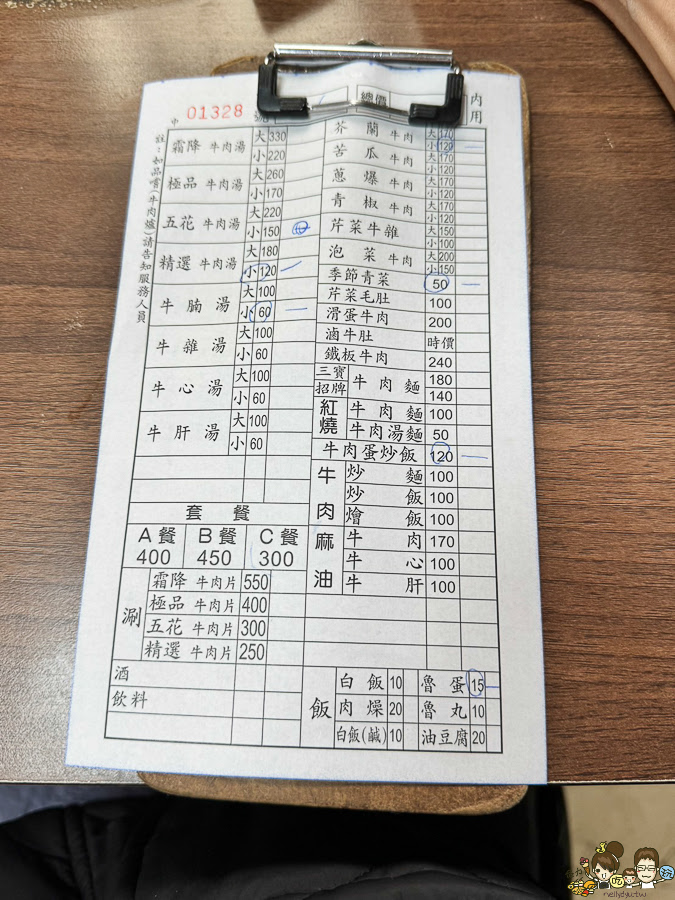 01328
總價
內用
註:如品嚐(牛肉爐)請告知服務人員
霜降 牛肉湯 大 330
小 220
極品 牛肉湯 大 260
小 170
五花 牛肉湯 大 220
小 150
精選 牛肉湯 大 180
小 120
牛腩湯 大 100
小 60
牛雜湯 大 100
小 60
牛心湯 大 100
小 60
牛肝湯 大 100
小 60
套餐
A餐 B餐 C餐
400 450 300
涮
霜降 牛肉片 550
極品 牛肉片 400
五花 牛肉片 300
精選 牛肉片 250
酒
飲料
芥蘭 牛肉 大 170
小 120
苦瓜 牛肉 大 170
小 120
蔥爆 牛肉 大 170
小 120
青椒 牛肉 大 170
小 120
芹菜牛雜 大 150
小 100
泡菜 牛肉 大 200
小 150
季節青菜 50
芹菜毛肚 100
滑蛋牛肉 200
滷牛肚 時價
鐵板牛肉 240
三寶 招牌 牛肉麵 180
140
紅燒 牛肉麵 100
牛肉湯麵 50
牛肉蛋炒飯 120
牛肉麻油
炒麵 100
炒飯 100
燴飯 100
牛肉 170
牛心 100
牛肝 100
飯
白飯 10 魯蛋 15
肉燥 20 魯丸 10
白飯(鹹) 10 油豆腐 20
nellydyu.tw